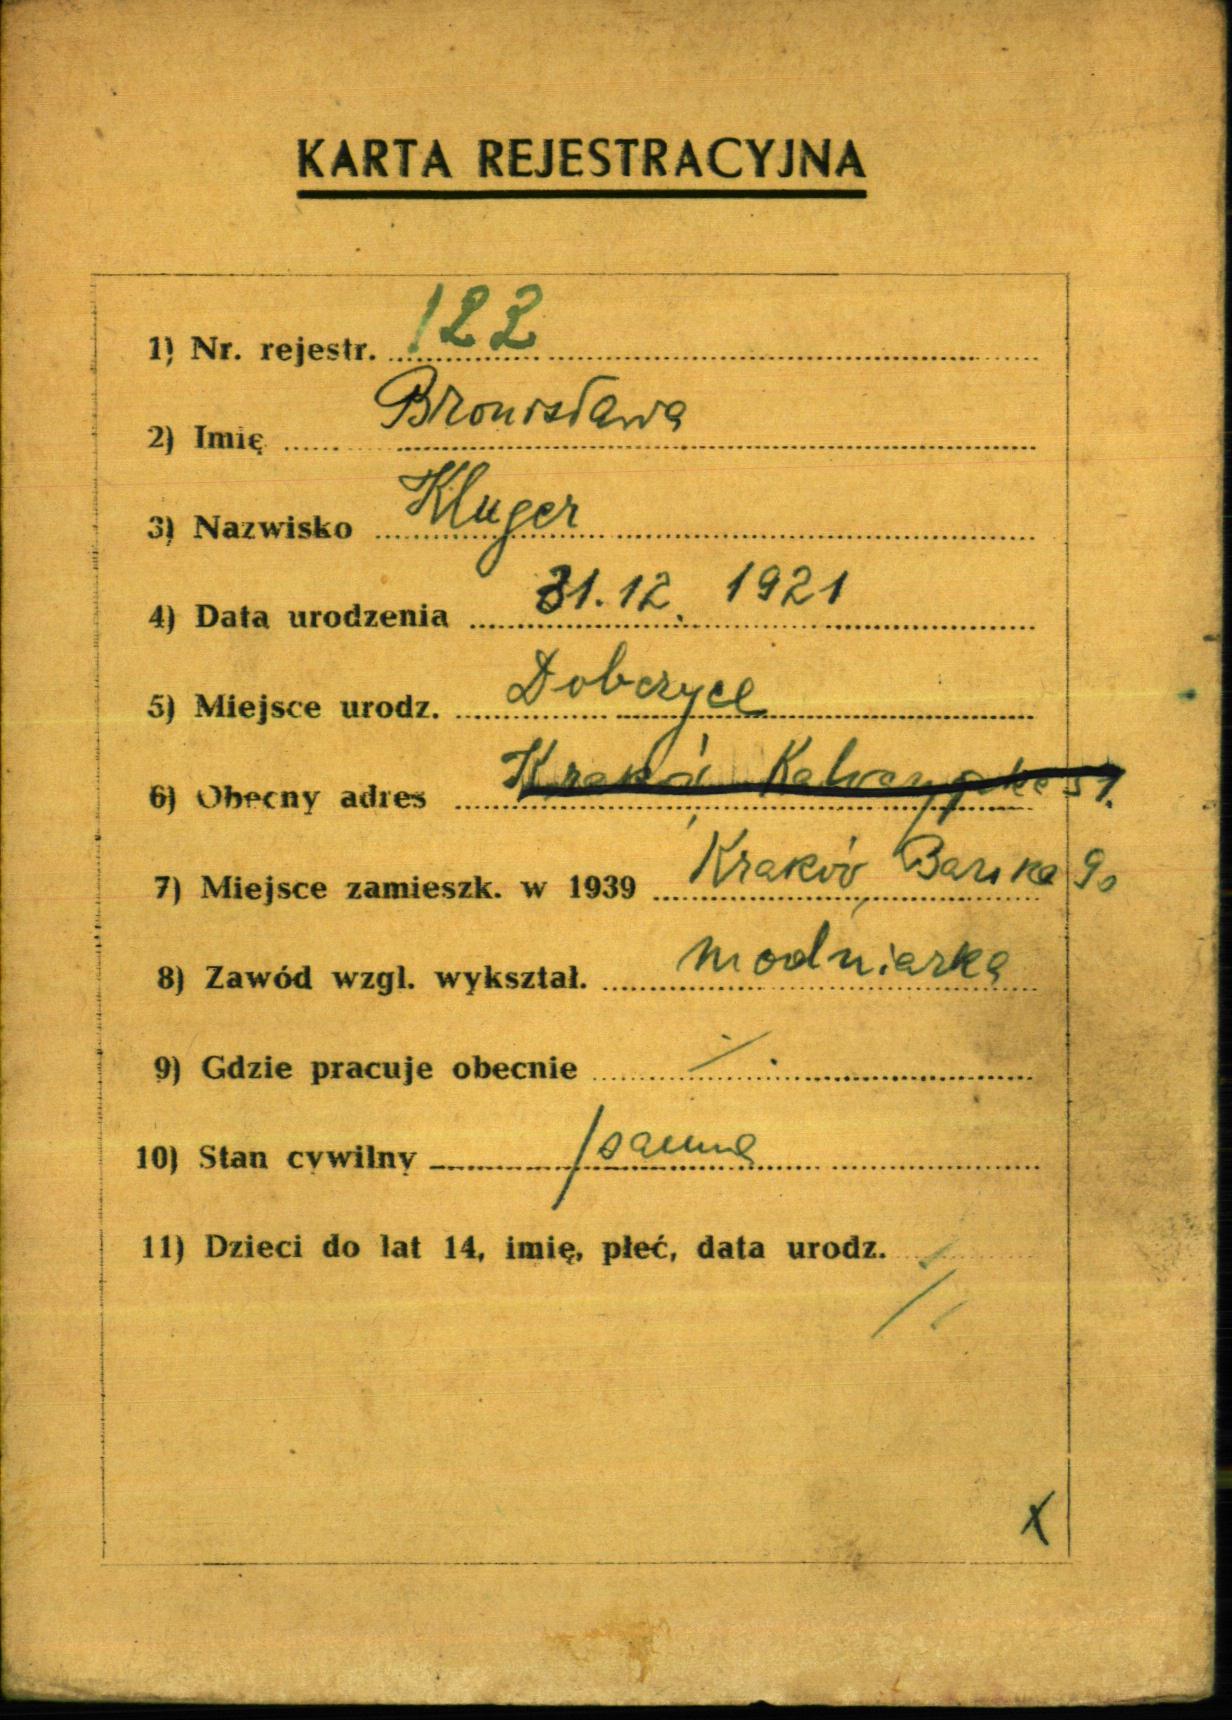 KARTA REJESTRACYJNA
1) Nr. rejestr. 122
2) Imię Bronisława
3) Nazwisko Kluger
4) Data urodzenia 31.12. 1921
5) Miejsce urodz. Dobczyce
6) Obecny adres Kraków Kalwaryjska
7) Miejsce zamieszk. w 1939 Kraków, Barska
8) Zawód wzgl. wykształ. modniarka
9) Gdzie pracuje obecnie
10) Stan cywilny panna
11) Dzieci do lat 14, imię, płeć, data urodz.
X